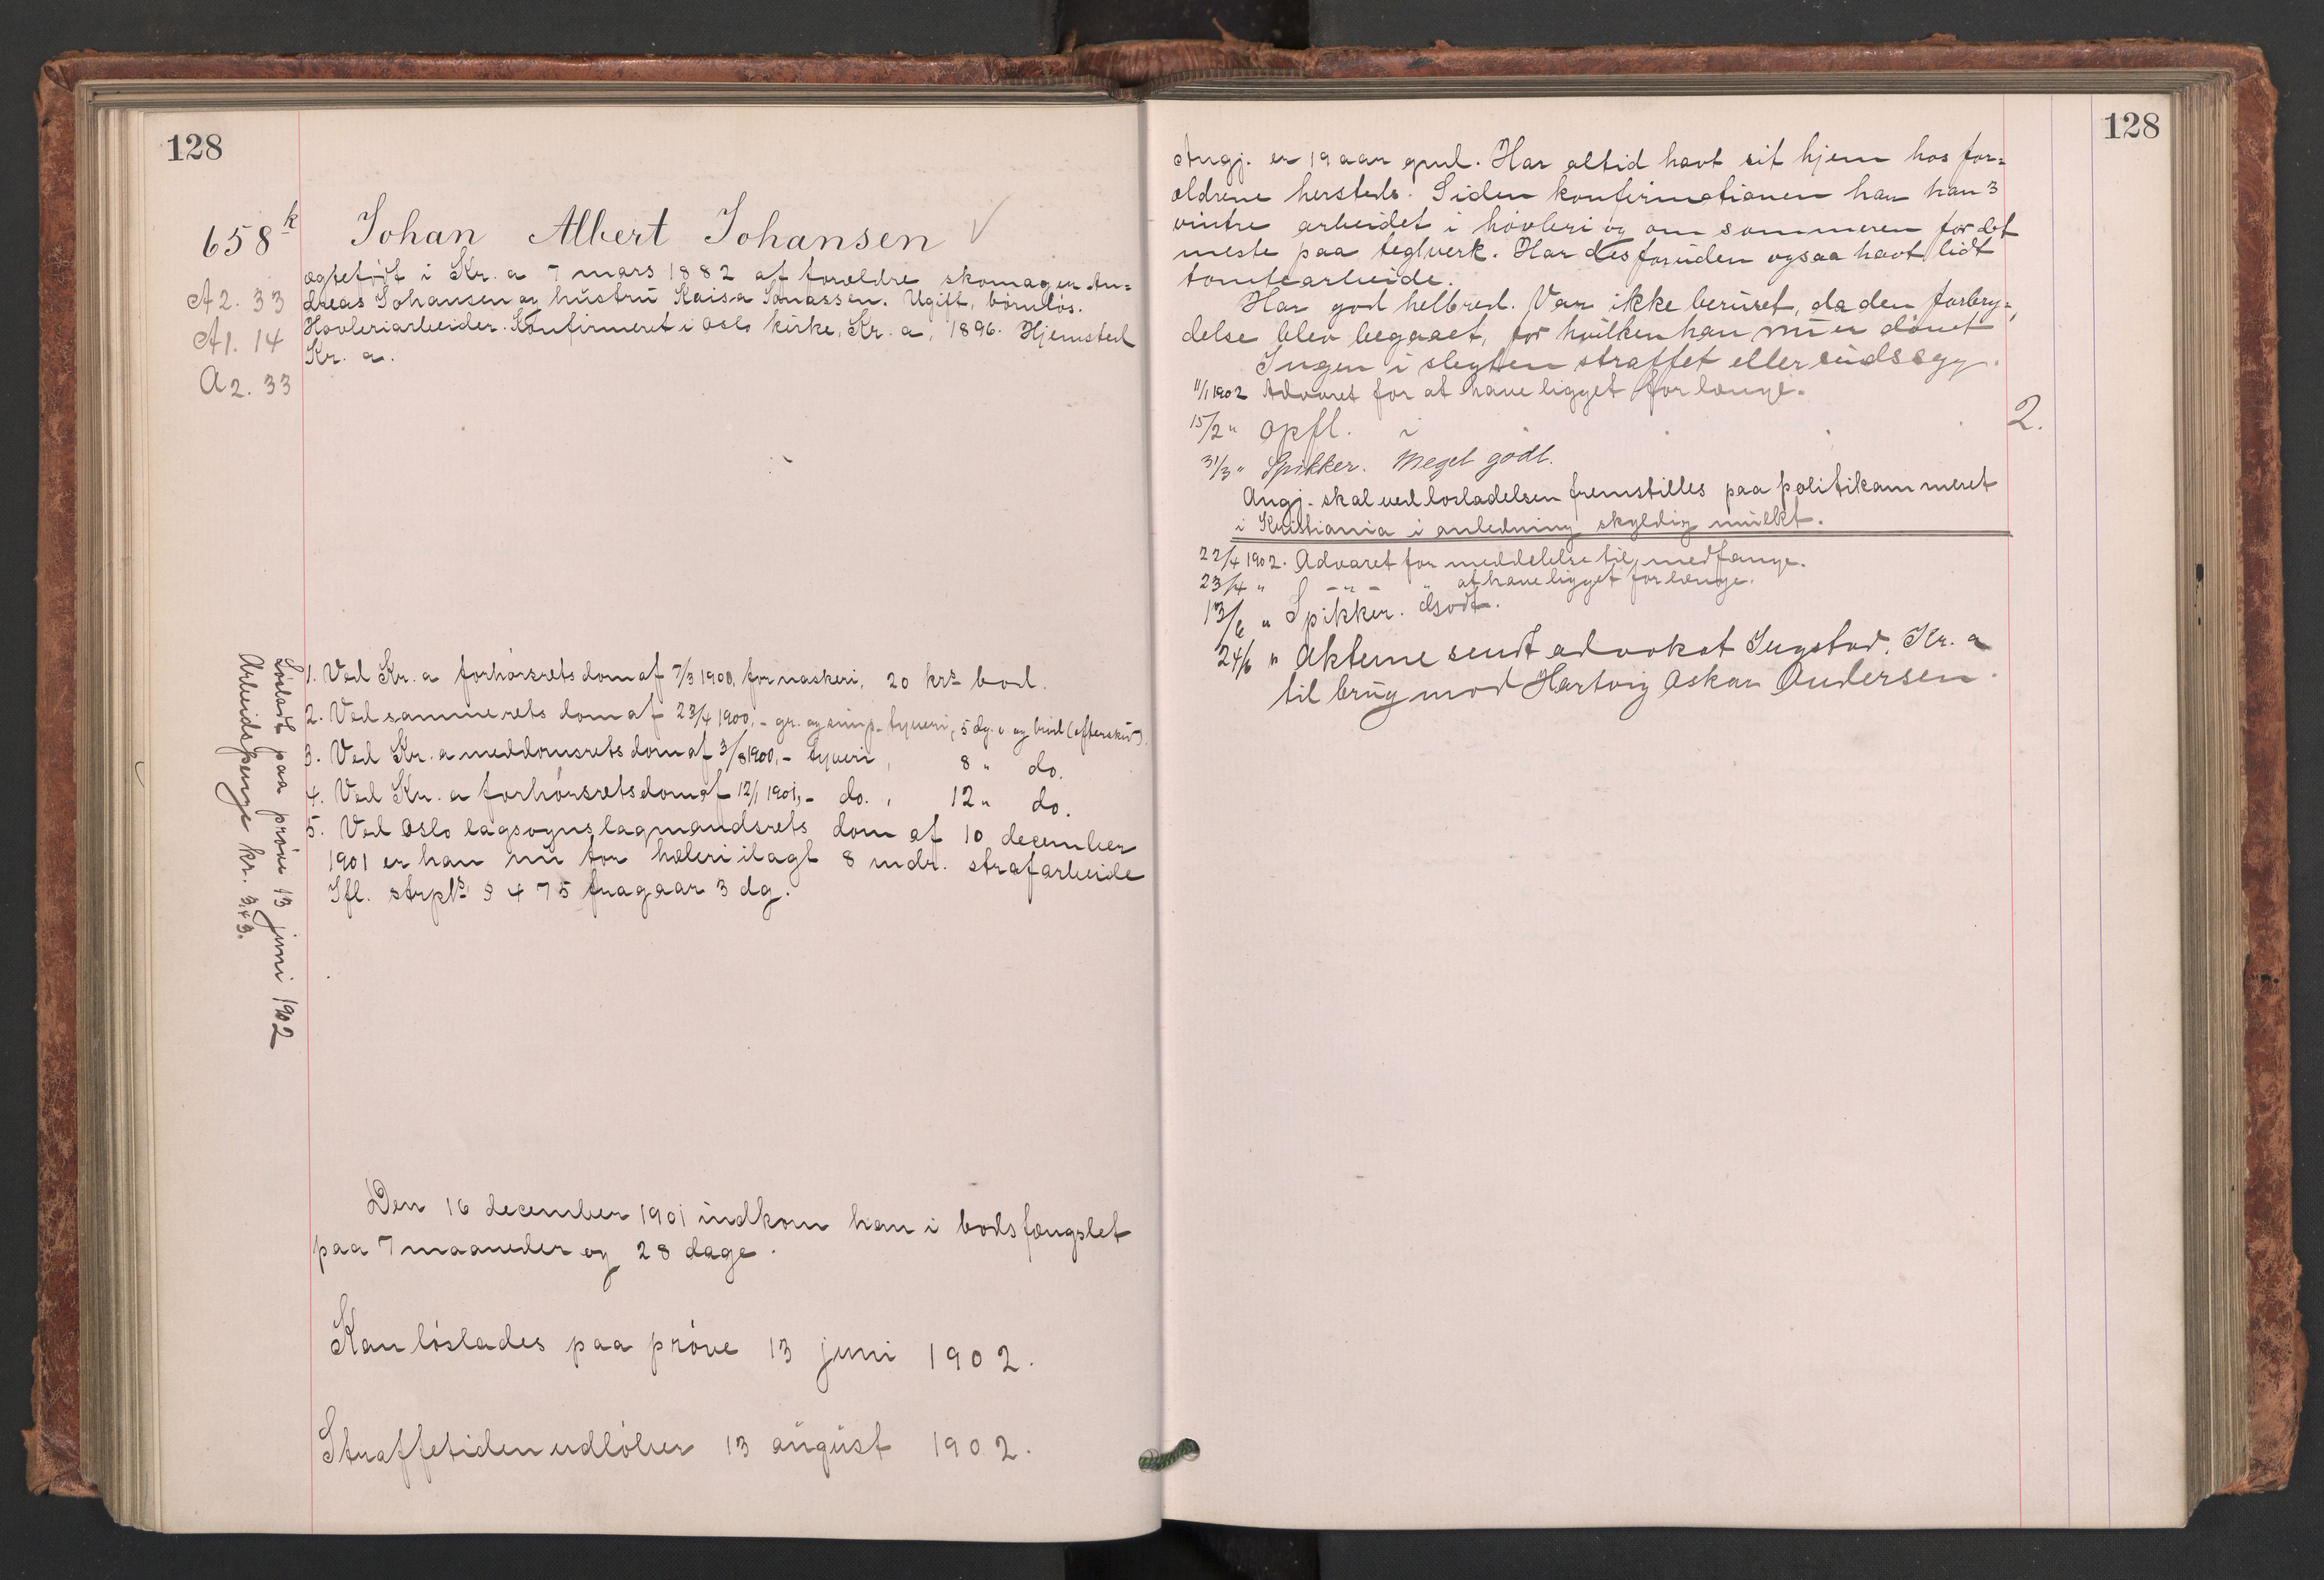 128
658k Johan Albert Johansen ✓
A2. 33
A1. 14
A2. 33
ægtefødt i Kr.a 7 mars 1882 af forældre skomager An=
dreas Johansen og hustru Kaisa Jonassen. Ugift, børnløs.
Høvleriarbeider. Konfirmeret i Oslo kirke, Kr.a, 1896. Hjemsted
Kr.a.
1. Ved Kr.a forhørsrets dom af 7/3 1900, for naskeri, 20 krs bod.
2. Ved samme rets dom af 23/4 1900, - gr. og simp. tyveri, 5 dg. v og brød (eftersk.).
3. Ved Kr.a meddomsrets dom af 3/8 1900, - tyveri, 8 " do.
4. Ved Kr.a forhørsrets dom af 12/1 1901, - do., 12 " do.
5. Ved Oslo lagsogns lagmandsrets dom af 10 december
1901 er han nu for hæleri ilagt 8 mdr. strafarbeide
Ifl. strpls § 475 fragaar 3 dg.
Løsladt paa prøve 13 juni 1902
Arbeidspenge kr. 3,43.
Den 16 december 1901 indkom han i bodsfængslet
paa 7 maaneder og 28 dage.
Kan løslades paa prøve 13 juni 1902.
Straffetiden udløber 13 august 1902.
128
Angj. er 19 aar gml. Har altid havt sit hjem hos for=
ældrene hersteds. Siden konfirmationen har han 3
vintre arbeidet i høvleri og om sommeren for det
meste paa teglverk. Har desforuden ogsaa havt lidt
tomtearbeide.
Har god helbred. Var ikke beruset, da den forbry=
delse blev begaaet, for hvilken han nu er dømt
Ingen i slegten straffet eller sindssyg.
11/1 1902 Advaret for at have ligget for længe.
15/2 " Opfl. 2.
31/3 " Spikker. Meget godt.
Angj. skal ved losladelsen fremstilles paa politikammeret
i Kristiania i anledning skyldig mulkt.
22/4 1902. Advaret for meddelelse til medfange.
23/4 " - " - " at have ligget for længe.
13/6 " Spikker. Godt.
24/6 " Akterne sendt advokat Ingstad, Kr.a
til brug mod Hartvig Oskar Andersen.